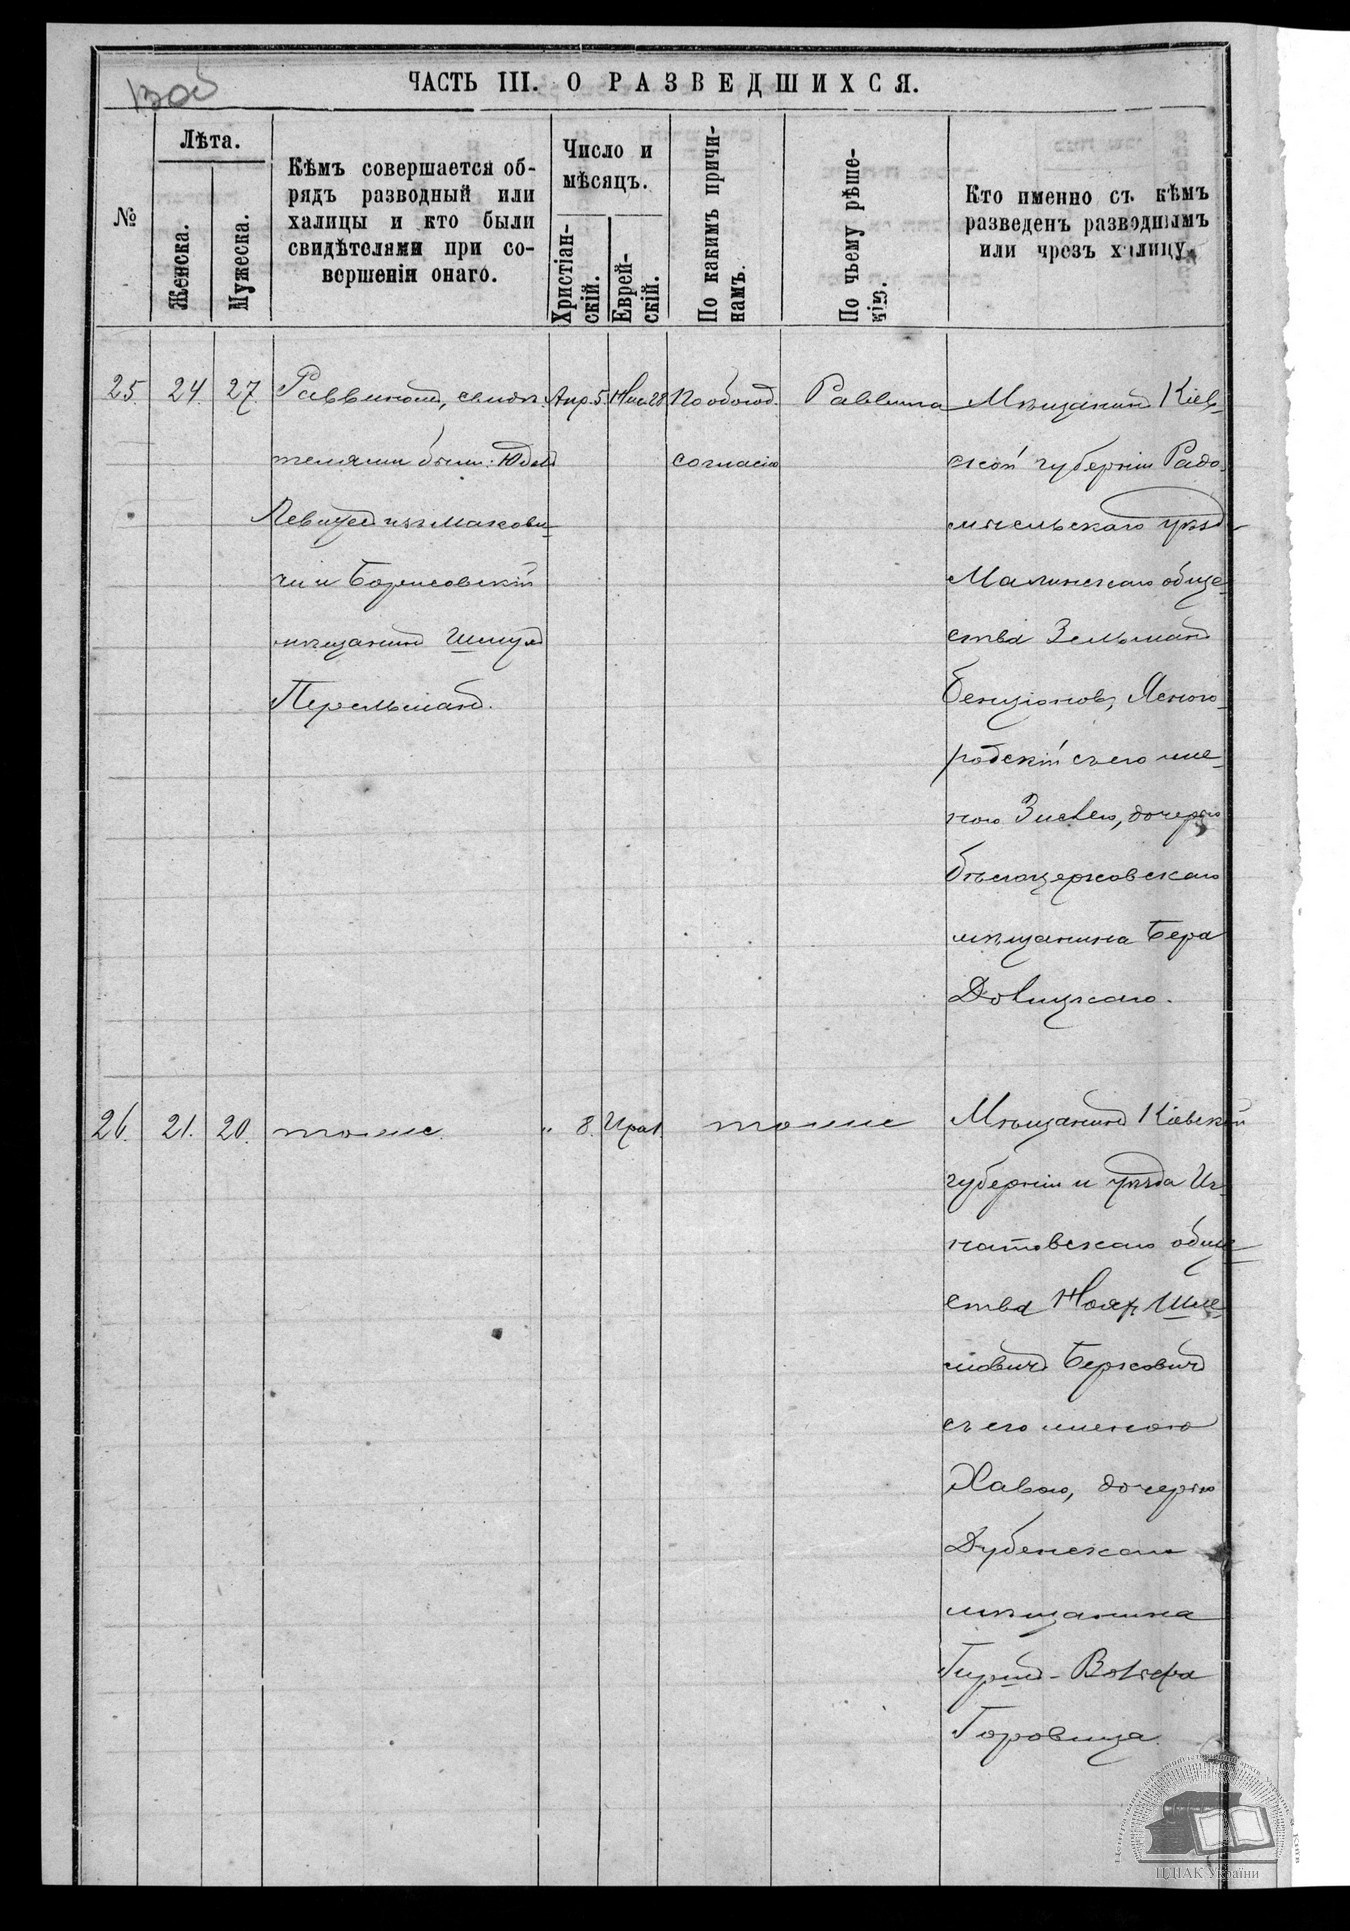 ЧАСТЬ III. О РАЗВЕДШИХСЯ.
№
Лѣта.
Женска.
Мужеска.
Кѣмъ совершается об-
рядъ разводный или
халицы и кто были
свидѣтелями при со-
вершеніи онаго.
Число и
мѣсяцъ.
Христіан-
скій.
Еврей-
скій.
По какимъ причи-
намъ.
По чьему рѣше-
нію.
Кто именно съ кѣмъ
разведенъ разводнымъ
или чрезъ халицу.
25. 24. 27.
Раввиномъ, свидѣ-
телями были: Юдель
Левитъ изъ Макови-
чи и Борисовскій
мѣщанинъ Шмуль
Перельманъ.
Апр. 5.
Нис. 28
По обоюд.
согласію
Раввина
Мѣщанинъ Кіев-
ской губерніи Радо-
мысльскаго уѣзда
Малинскаго обще-
ства Зельманъ
Бенціонов. Ясного-
родскій съ его же-
ною Зислею, дочерью
бѣлоцерковскаго
мѣщанина Бера
Довицкаго.
26. 21. 20.
тоже
" 8. Ира 1.
тоже
Мѣщанинъ Кіевской
губерніи и уѣзда Иг-
натовскаго обще-
ства Нояхъ Шле-
мовичъ Берковичъ
съ его женою
Хавою, дочерью
Дубенскаго
мѣщанина
Гиршъ-Вольфа
Горовица.
ЦДІАК України